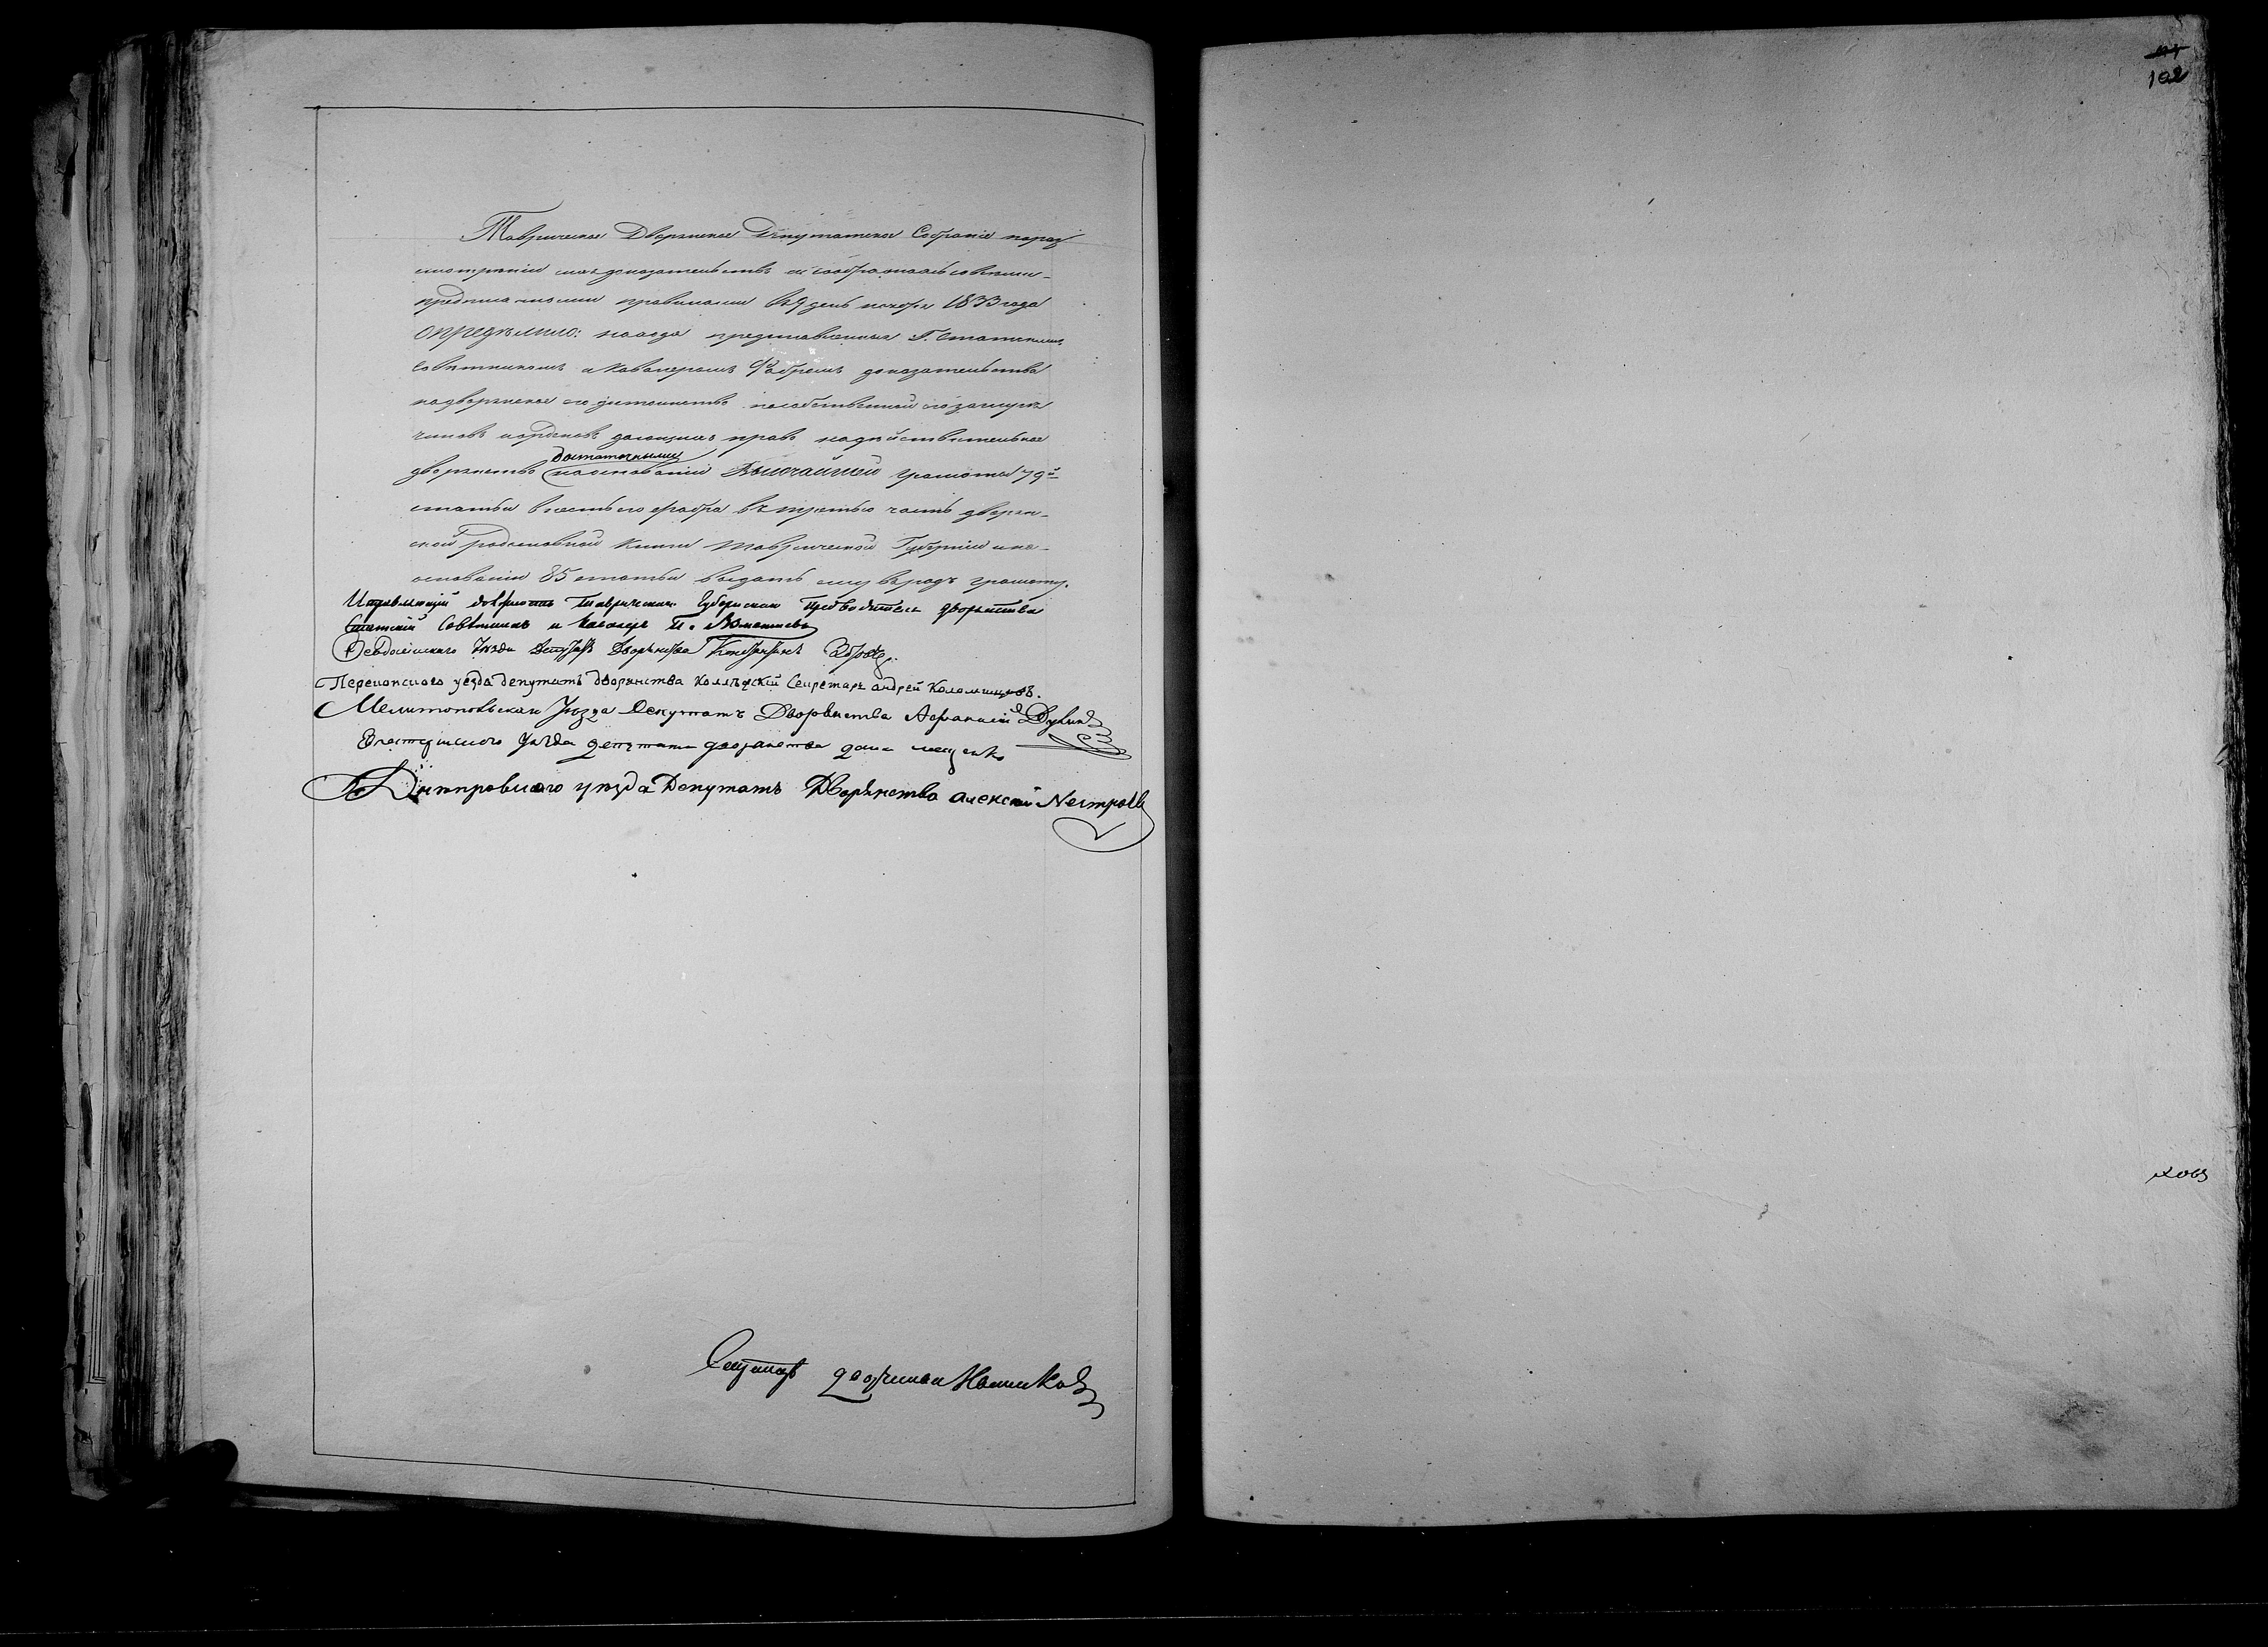 Таврическое Дворянское Депутатское Собраніе пораз
смотреніи сихъ доказательствъ и соображаясь совсеми
предписанными правилами въ 9 день ноября 1833 года
опредѣлило: находя представленныя Г. Статскимъ
Совѣтникомъ и Кавалеромъ Фабромъ доказательства
надворянское его достоинство пособственной его заслугѣ
чиновъ иорденовъ дающихъ право надѣйствительное
достаточными
дворянство наоснованіи Высочайшей грамоты 79й
статьи внесть его Фабра въ третью часть дворян-
ской родословной книги Таврической Губерніи и на-
основаніи 85 статьи выдать ему вѣродъ грамоту.
Исправляющій должность Таврическаго Губернскаго Предводителя дворянства
Статскій Совѣтникъ и Кавалеръ
Феодосійскаго Уѣзда Депутатъ Дворянства Константинъ
Перекопского уезда депутатъ дворянства Коллежскій Секретарь андрей Коломийцовъ.
Мелитопольскаго Уѣзда Депутатъ Дворянства Афанасій
Уѣзда депутатъ дворянства
Днѣпровского уезда Депутатъ Дворянства алексей Nестроевъ
Секретарь дворянства
102